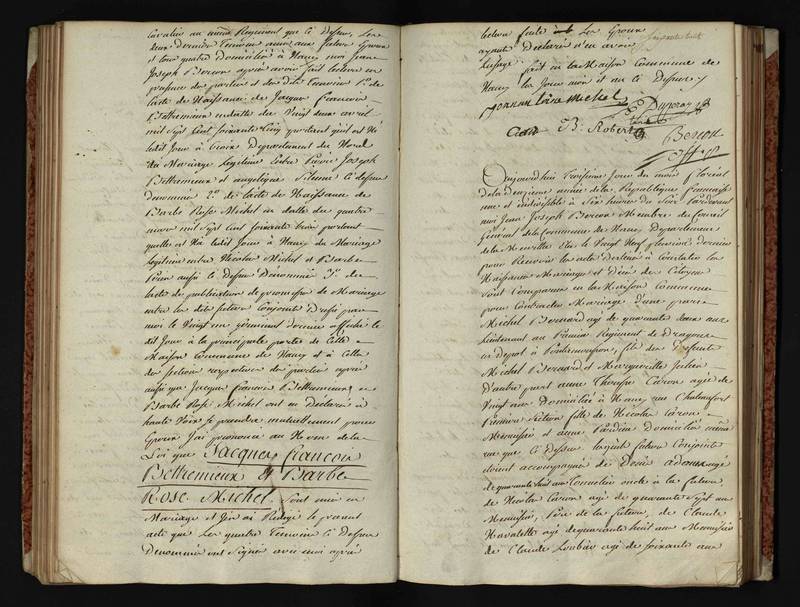 Cavalier au même Régiment que ci Dessus, Les
deux Derniers Témoins amis aux futurs Epoux
et tous quatre Domiciliés à Nancy, moi Jean
Joseph Berson après avoir fait lecture en
présence des parties et des dits Témoins 1.° de
l'acte de Naissance de Jacques François
Bettremieux en datte du Vingt deux avril
mil Sept Cent Soixante Cinq portant qu'il est Né
ledit Jour à Croix Département du Nord
du Mariage légitime Entre Pierre Joseph
Bettremieux et angelique ci dessus
dénommés 2.° de l'acte de Naissance de
Barbe Rose Michel en datte du quatre
mil Sept Cent Soixante trois portant
quelle est Née ledit Jour à Nancy du Mariage
légitime entre Nicolas Michel et Barbe
aussi ci Dessus Dénommés 3.° de
l'acte de publication de promesse de Mariage
entre les dits futurs Conjoints Dressé par
moi le Vingt un germinal dernier affiché le
dit Jour à la principale porte de Cette
Maison Commune de Nancy et à Celle
des Section respectives des parties après
aussi que Jacques François Bettremieux et
Barbe Rose Michel ont eu Déclaré à
haute Voix Se prendre mutuellement pour
Epoux J'ai prononcé au Nom de la
Loi que Jacques françois
Bettremieux et Barbe
Rose Michel Sont unis en
Mariage et J'en ai Rédigé le présent
acte que Les quatre Témoins ci Dessus
Dénommés ont Signés avec moi après
lecture faite Les Epoux
ayant Déclarés n'en avoir
l'usage. fait en la Maison Commune de
Nancy les Jour mois et an ci Dessus
Michel
Dupray
B. Robert
Berson
off. p.
Aujourd'hui Troisième Jour du mois floréal
de la deuxième année de la République française
une et indivisible à Six heures du Soir Pardevant
moi Jean Joseph Berson Membre du Conseil
général de la Commune de Nancy Département
de la Meurthe Elu le Vingt Neuf pluviôse dernier
pour Recevoir les actes Destinés à Constater les
Naissances Mariages et Décès des Citoyens
Sont Comparus en la Maison Commune
pour Contracter Mariage d'une part
Michel Bernard agé de quarante deux ans
lieutenant au Premier Régiment de Dragons
en Dépot à Pontamousson, fils des Défunts
Michel Bernard et Marguerite Julien
D'autre part anne Thérese Caron agée de
Vingt ans Domiciliée à Nancy rue Chateaufort
Première Section fille de Nicolas Caron
Menuisier et anne Domiciliés même
rue que ci Dessus. lesquels futurs Conjoints
étoient accompagnés de Denis agé
de quarante huit ans oncle à la future,
de Nicolas Caron agé de quarante Sept ans
Menuisier, Père de la future, de Claude
Navalotte agé de quarante huit ans Menuisier
de Claude Loubier agé de soixante ans